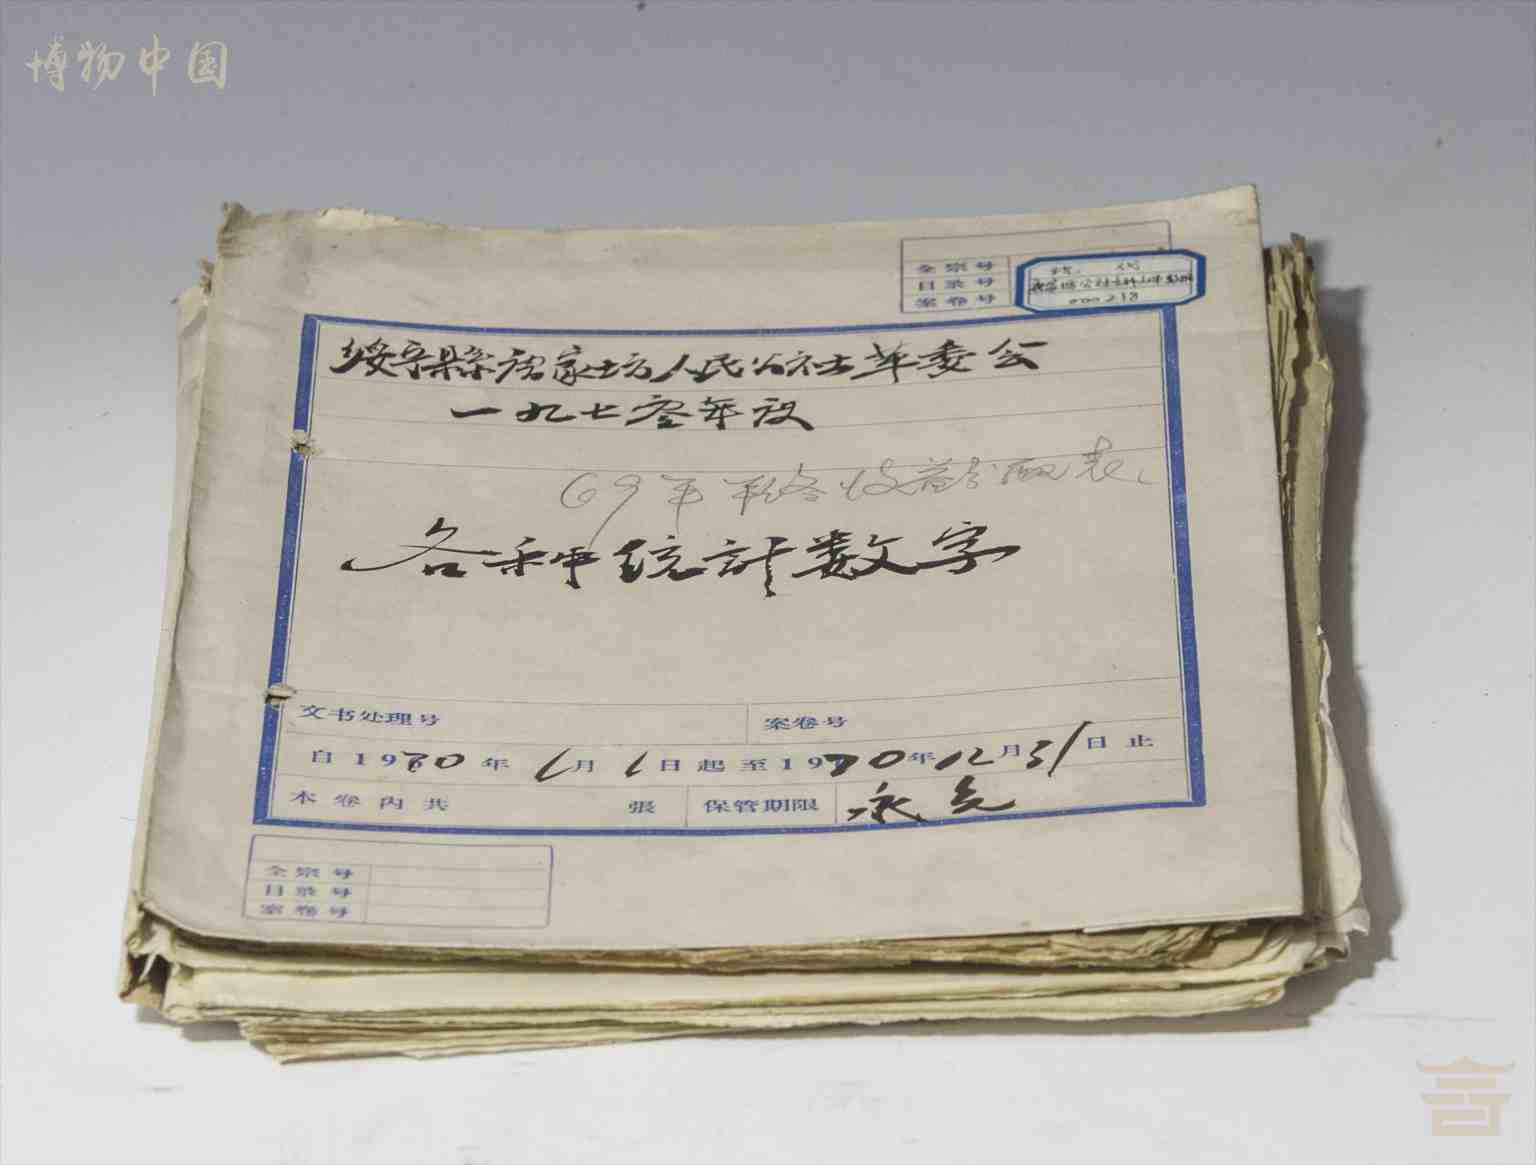 博物中国
全宗号
目录号
案卷号
000218
绥宁縣
家坊人民公社革委会
一九七零年
69年年终收益分配表
各种统計数字
文书处理号
案卷号
自1970年1月1日起至1970年12月31日止
本卷内共 張
保管期限 永久
全宗号
目录号
案卷号